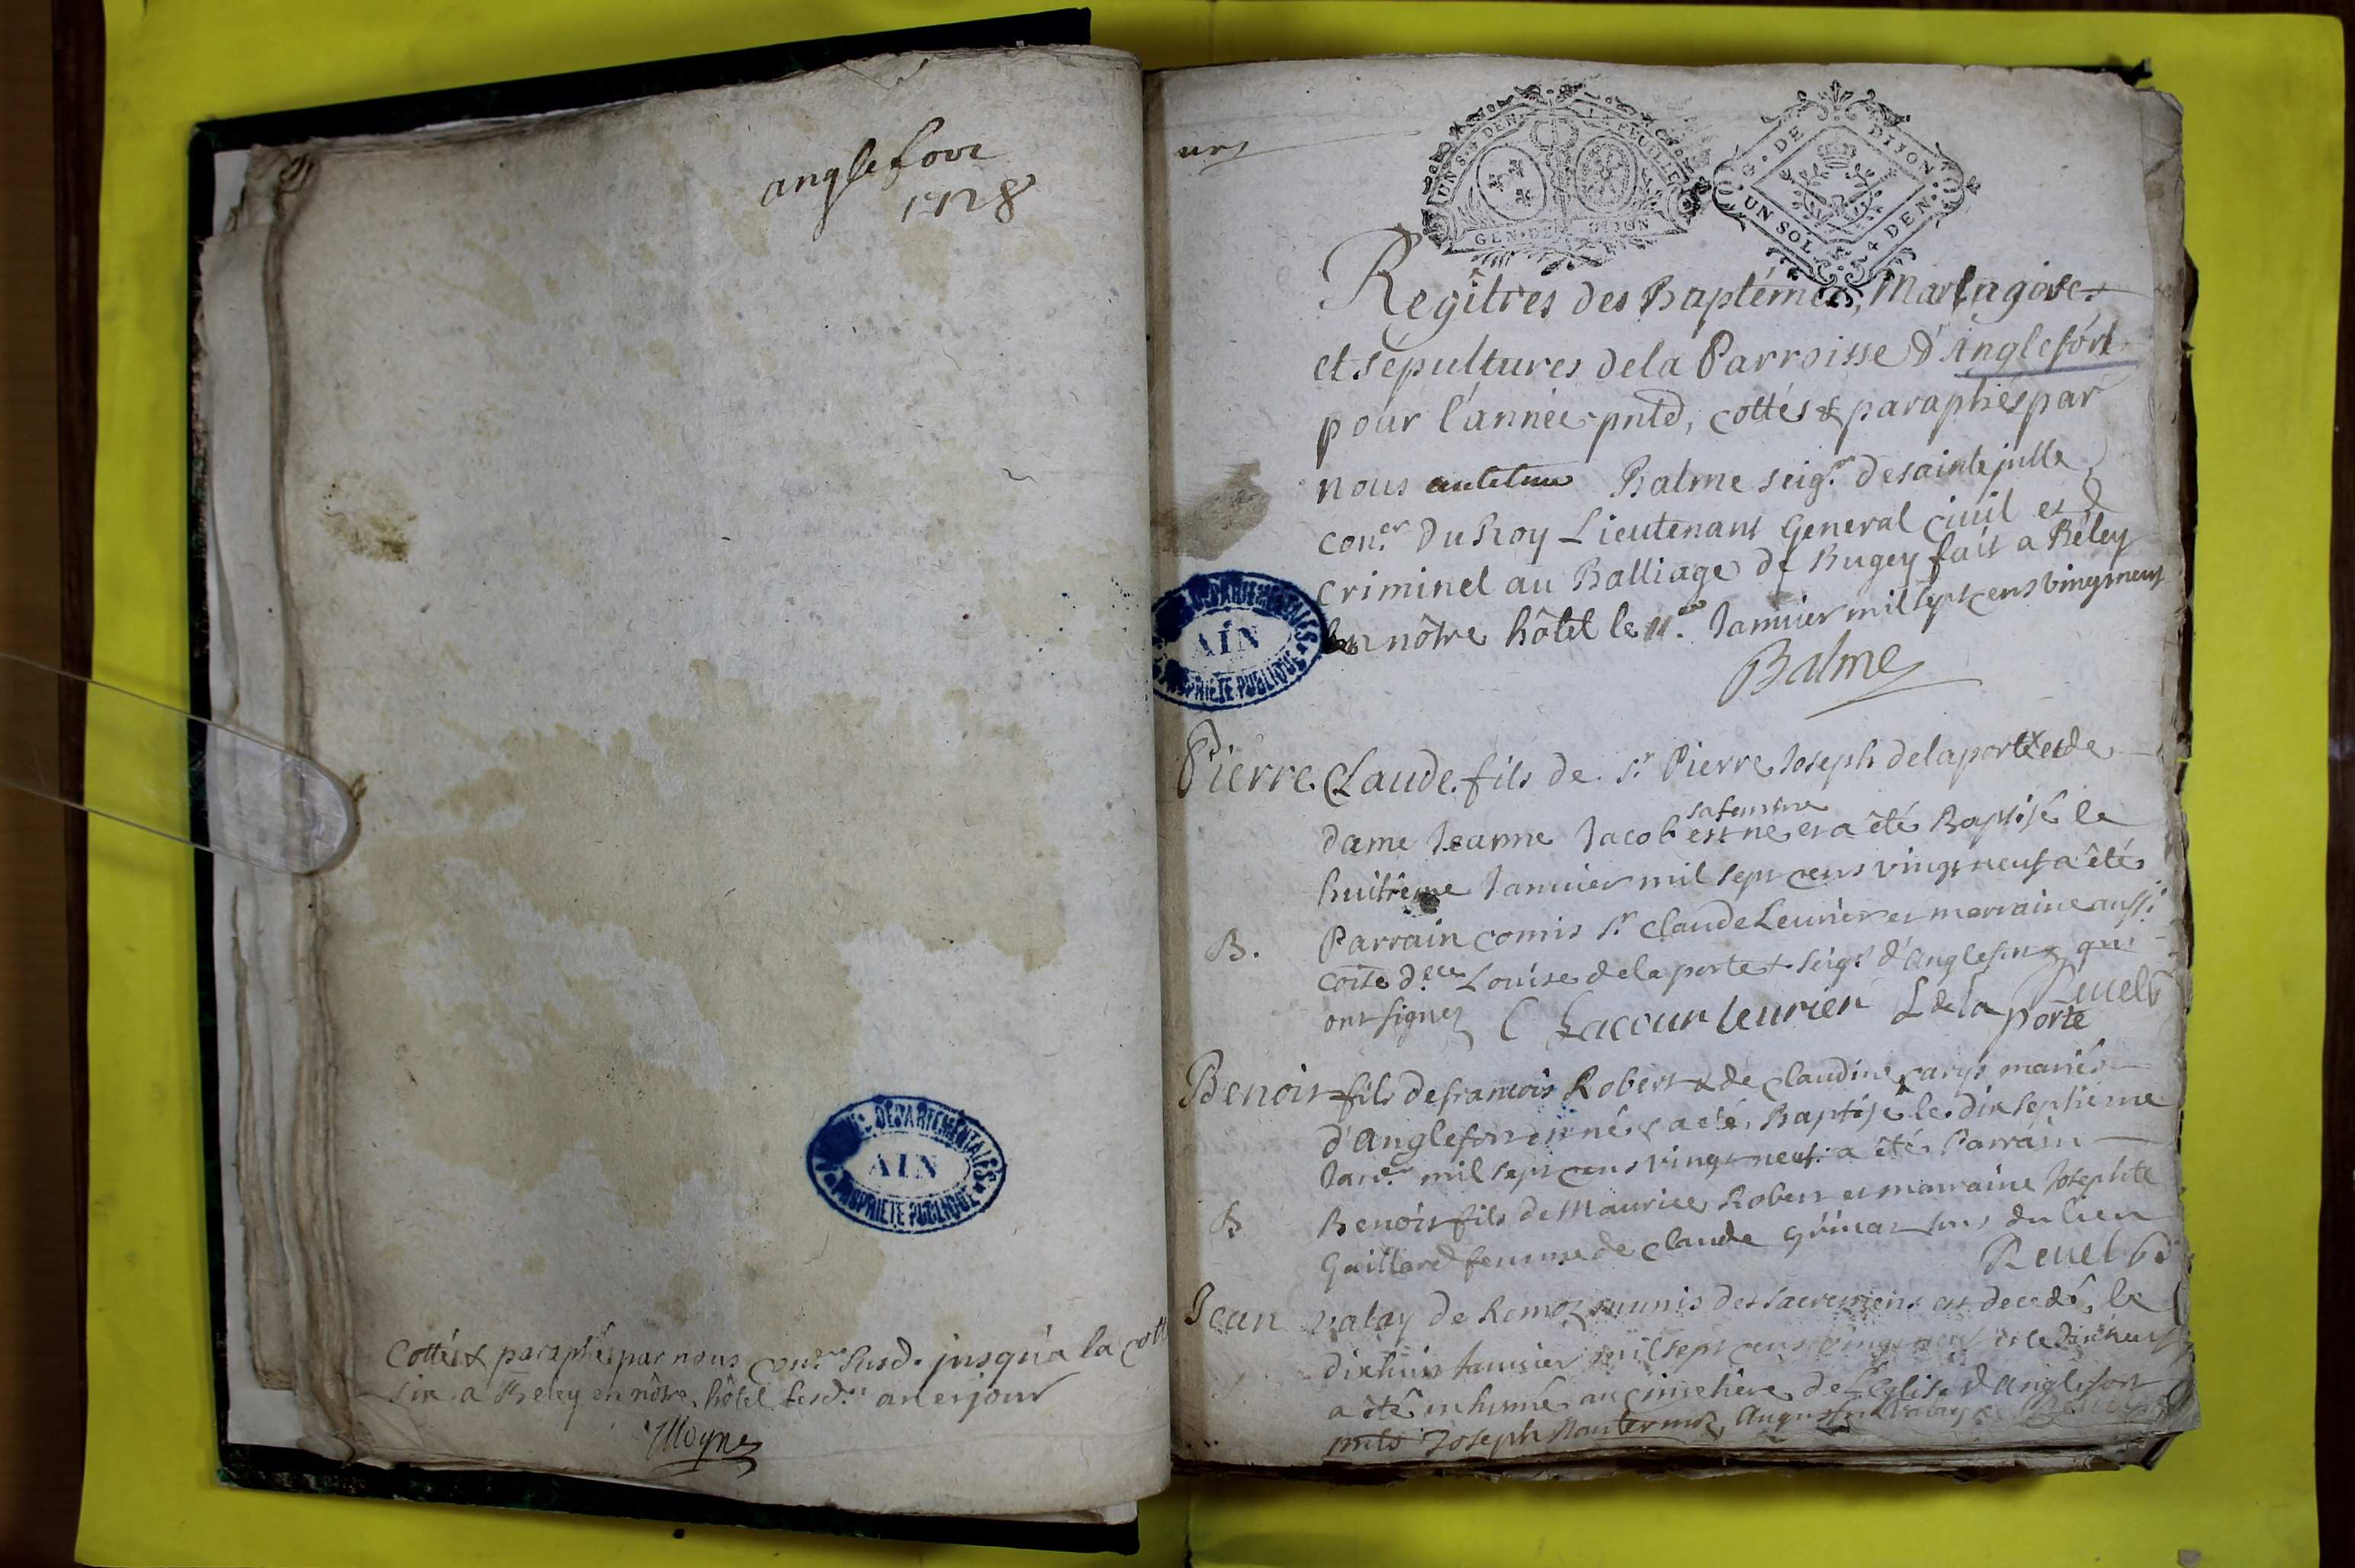 anglefort
1728
Cottés & paraphés par nous con.er susd. jusqu'a la cotte
six a Beley en nôtre hôtel lesd.ts an et jour
Moyne
ARCHIVES DÉPARTEMENTALES
AIN
PROPRIÉTÉ PUBLIQUE
UN S. 4 DEN. LA FEUILLE
GEN. DE DIJON
G. DE DIJON
UN SOL 4 DEN.
Regîtres des Baptêmes, Mariages
et sépultures de la Parroisse d'Anglefort
pour l'année pntd, cottés & paraphés par
nous Balme seig.r de sainte julle
con.er Du Roy Lieutenant General civil et
criminel au Balliage de Bugey fait a Béley
en nôtre hôtel le 11.e Janvier mil sept cens vingt neuf
Balme
ARCHIVES DÉPARTEMENTALES
AIN
PROPRIÉTÉ PUBLIQUE
Pierre Claude fils de s.r Pierre Joseph delaporte et de
sa femme
dame Jeanne Jacob est né et a êté Baptisé le
huitième Janvier mil sept cens vingt neuf a êté
B. Parrain comis s.r Claude Leurier et marraine aussi
Louise de la porte seig.r d'Anglefort qui
ont signez C Lacour leurier L de la porte
Benoit fils de francois Robert & de Claudine mariés
d'Anglefort est né & a eté Baptisé le dix septieme
Janv.er mil sept cens vingt neuf a êté Parrain
B Benoit fils de Maurice Robert et marraine Josephte
Gaillard femme de Claude du lieu
Revel
Jean valay de Remoz munis des sacremens est decedé le
dixhuit Janvier mil sept cens vingt neuf et le dixneuf
a êté inhumé au cimetière de L'Eglise d'Anglefort
pnts Joseph